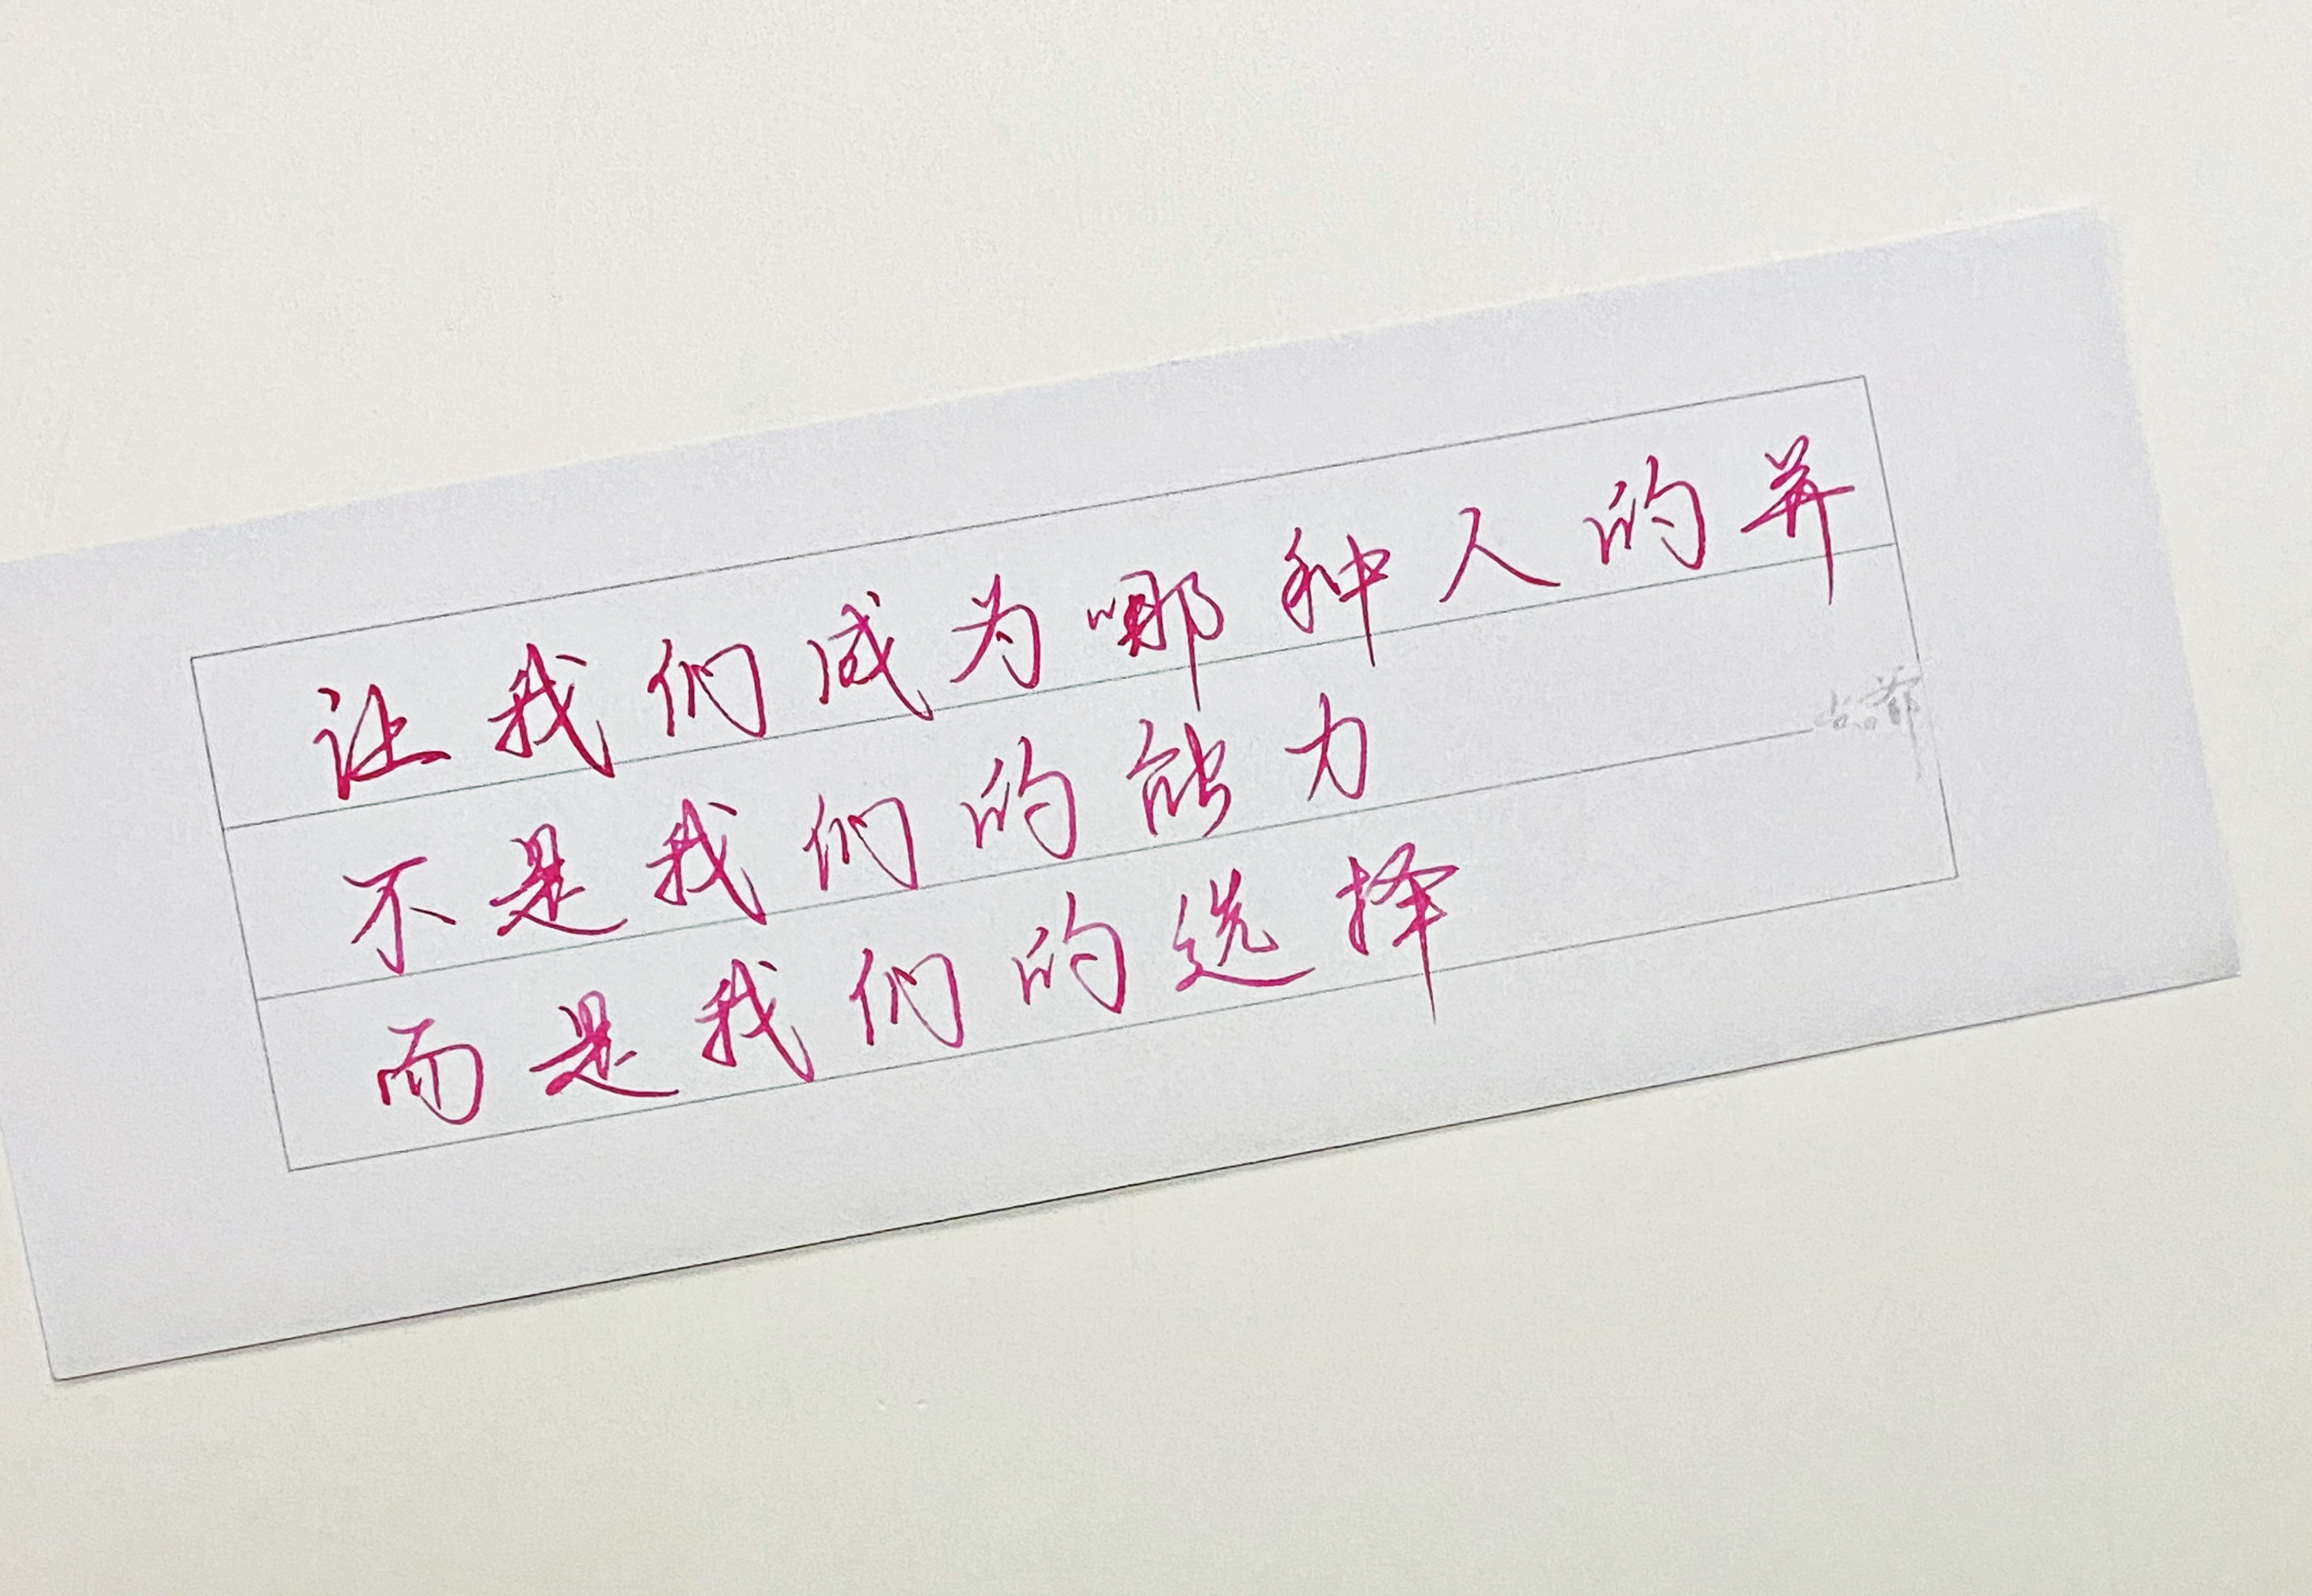 让我们成为哪种人的并
不是我们的能力
而是我们的选择